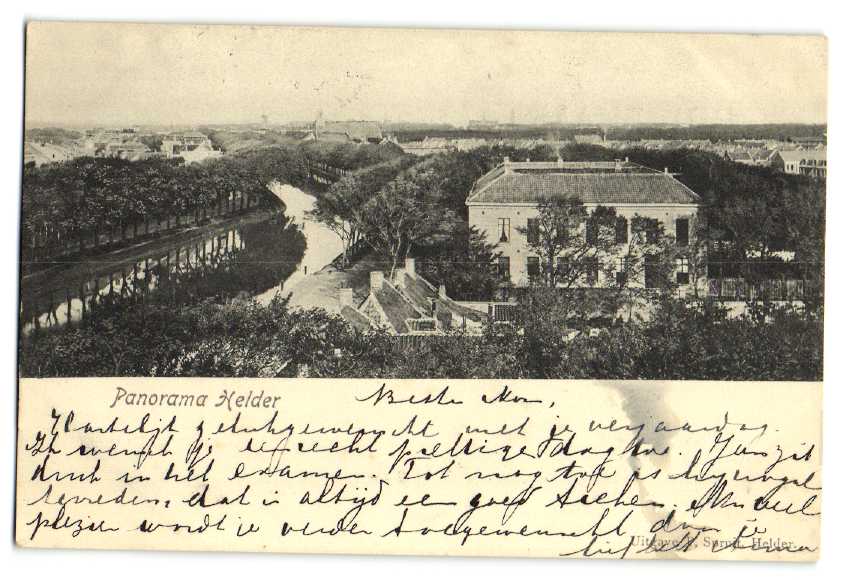 Panorama Helder
Beste
Hartelijk gelukgewenscht met je verjaardag.
Ik wensch je een recht prettige dag toe. Jan zit
druk in het examen. Tot nog toe is hij nogal
tevreden, dat is altijd een goed teeken. veel
plezier wordt je verder toegewenscht door je
liefh.
Uitgave Helder.